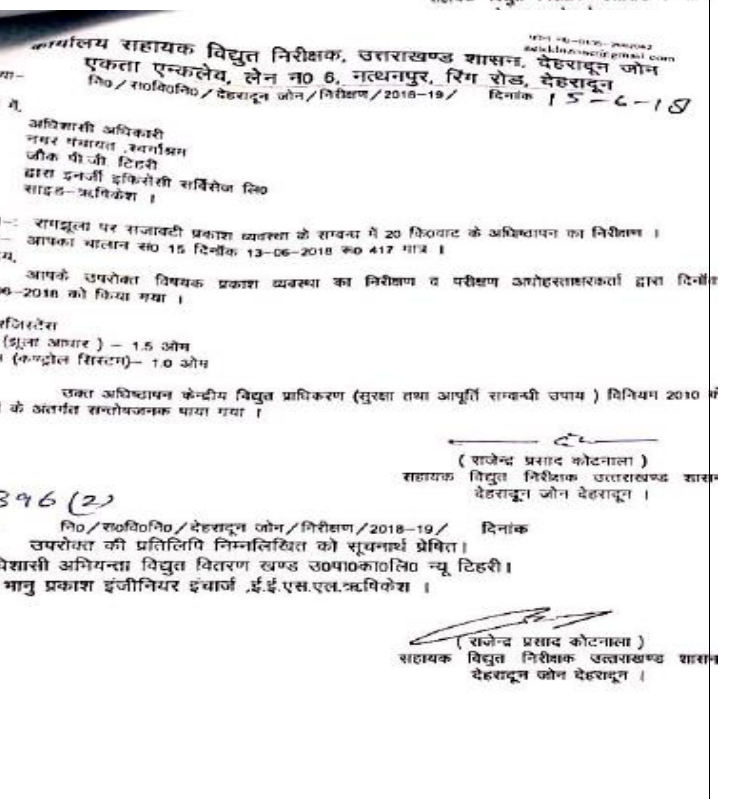 कार्यालय सहायक विद्युत निरीक्षक, उत्तराखण्ड शासन, देहरादून जोन
एकता एन्कलेव, लेन न0 6, नत्थनपुर, रिंग रोड, देहरादून
नि0/स0वि0नि0/देहरादून जोन/निरीक्षण/2018-19/ दिनांक 15-6-18
में,
अधिशासी अधिकारी
नगर पंचायत ,स्वर्गाश्रम
जौंक पौ.जी. टिहरी
द्वारा इनर्जी इफिसेंसी सर्विसेज लि0
साइड-ऋषिकेश ।
रामझूला पर सजावटी प्रकाश व्यवस्था के सम्बन्ध में 20 कि0वाट के अधिष्ठापन का निरीक्षण ।
आपका चालान सं0 15 दिनॉक 13-06-2018 रू0 417 मात्र ।
आपके उपरोक्त विषयक प्रकाश व्यवस्था का निरीक्षण व परीक्षण अधोहस्ताक्षरकर्ता द्वारा दिनॉक
06-2018 को किया गया ।
रजिस्टेंस
(झूला आधार ) – 1.5 ओम
(कण्ट्रोल सिस्टम)– 1.0 ओम
उक्त अधिष्ठापन केन्द्रीय विद्युत प्राधिकरण (सुरक्षा तथा आपूर्ति सम्बन्धी उपाय ) विनियम 2010
के अंतर्गत सन्तोषजनक पाया गया ।
( राजेन्द्र प्रसाद कोटनाला )
सहायक विद्युत निरीक्षक उत्तराखण्ड शासन
देहरादून जोन देहरादून ।
396 (2)
नि0/स0वि0नि0/देहरादून जोन/निरीक्षण/2018-19/ दिनांक
उपरोक्त की प्रतिलिपि निम्नलिखित को सूचनार्थ प्रेषित।
धिशासी अभियन्ता विद्युत वितरण खण्ड उ0पा0का0लि0 न्यू टिहरी।
भानु प्रकाश इंजीनियर इंचार्ज ,ई.ई.एस.एल.ऋषिकेश ।
( राजेन्द्र प्रसाद कोटनाला )
सहायक विद्युत निरीक्षक उत्तराखण्ड शासन
देहरादून जोन देहरादून ।